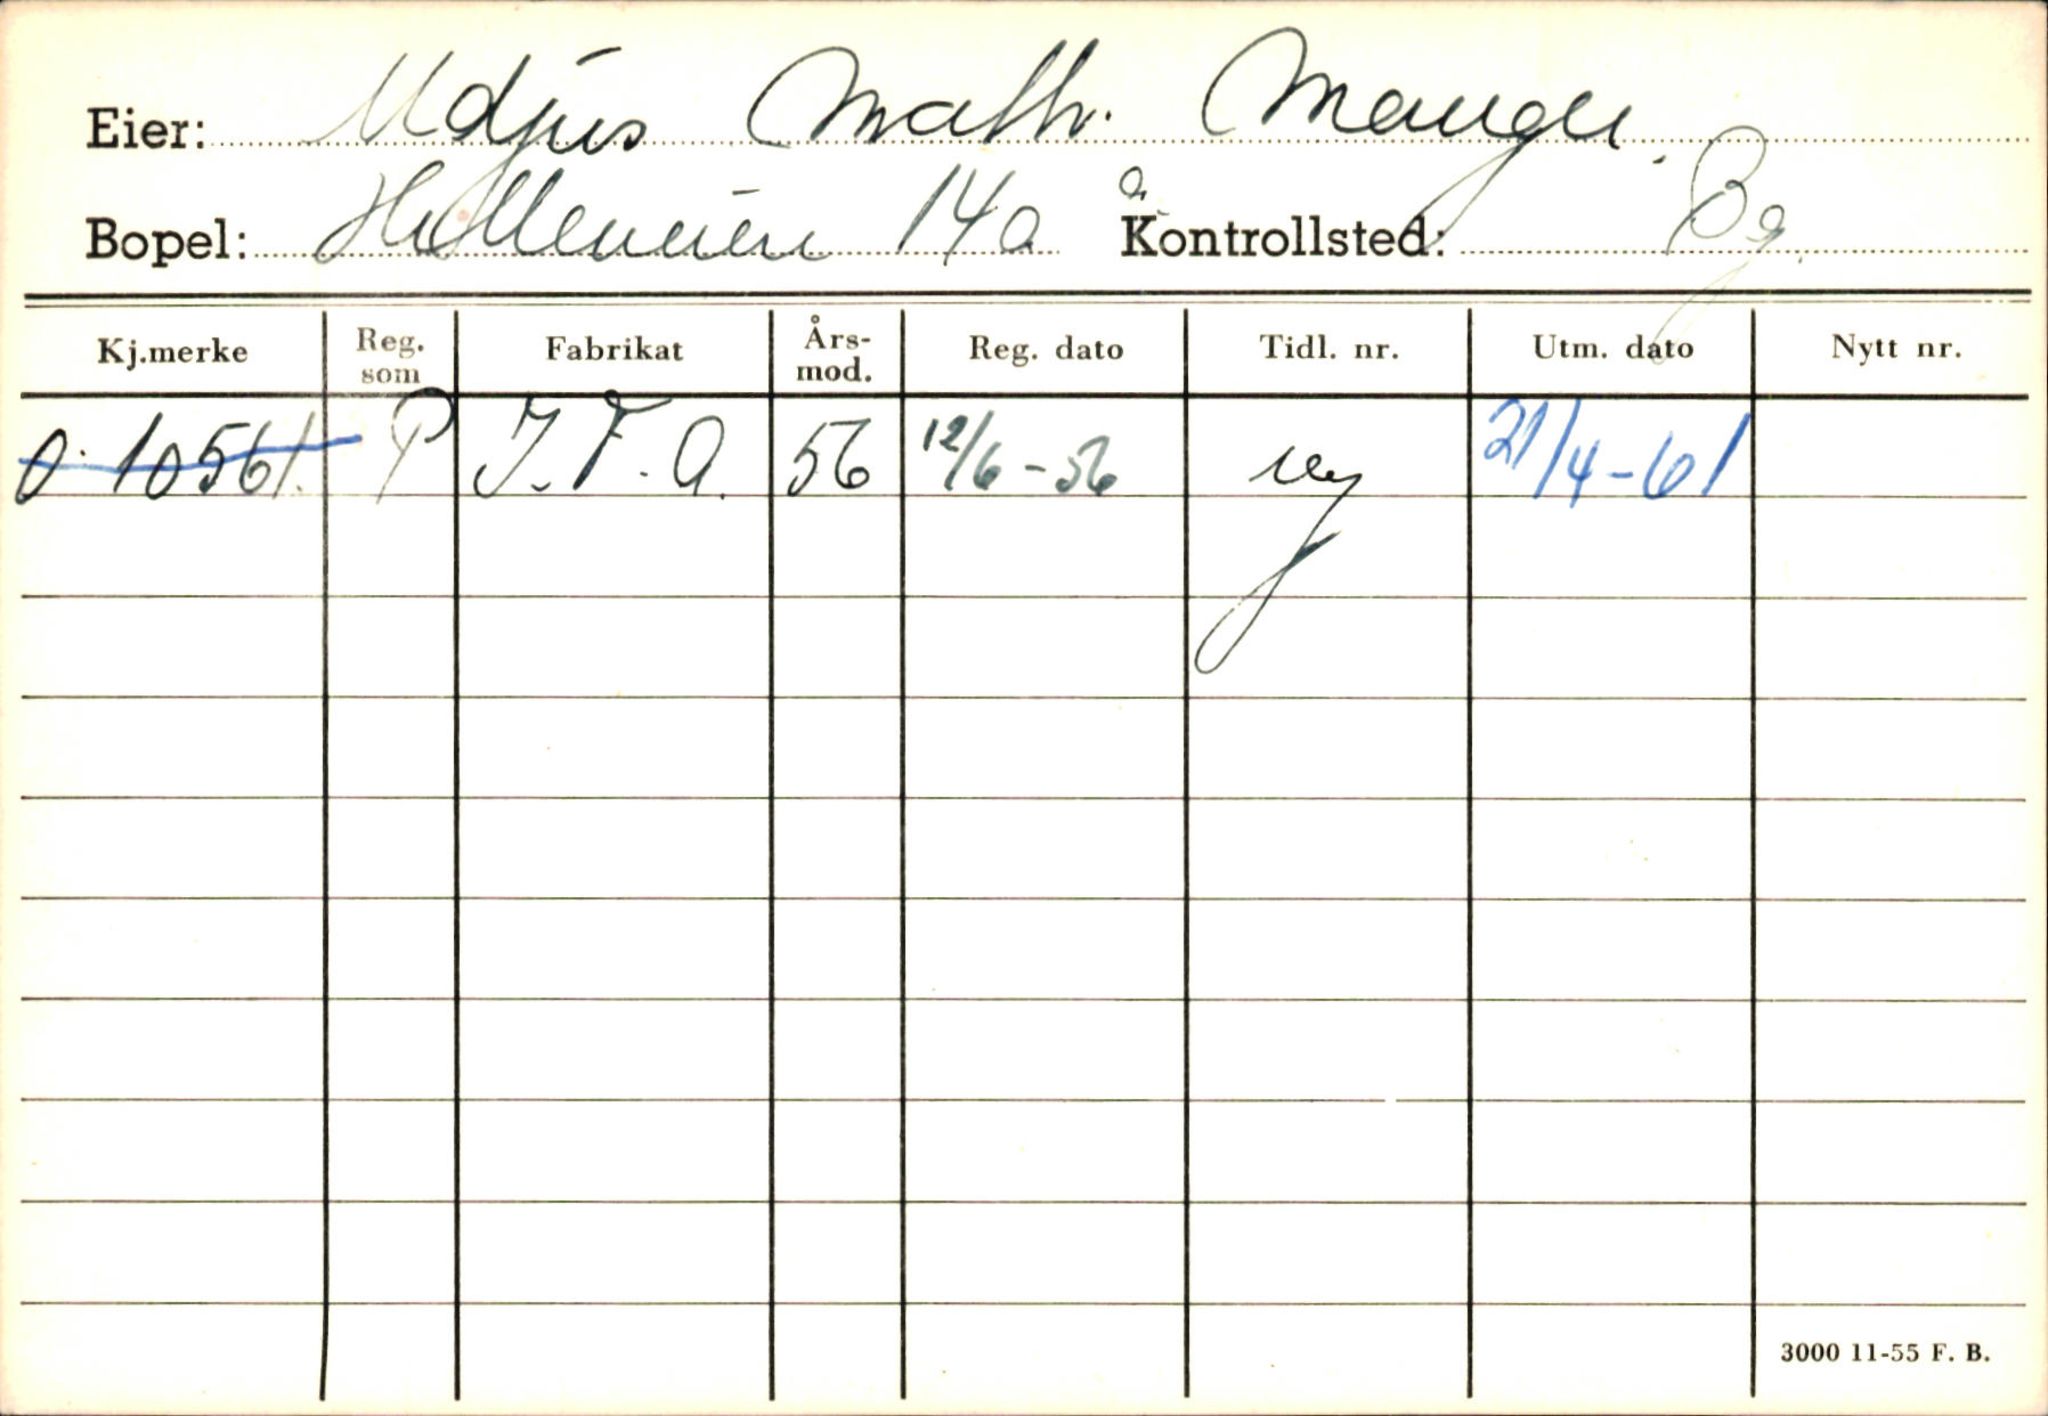 Eier: Udjus Math. Mauger.
Bopel: 14a Kontrollsted: Bg.
Kj.merke Reg. som Fabrikat Års-mod. Reg. dato Tidl. nr. Utm. dato Nytt nr.
O. 10561. P I.F.A. 56 12/6-56 Ny 21/4-61
3000 11-55 F. B.